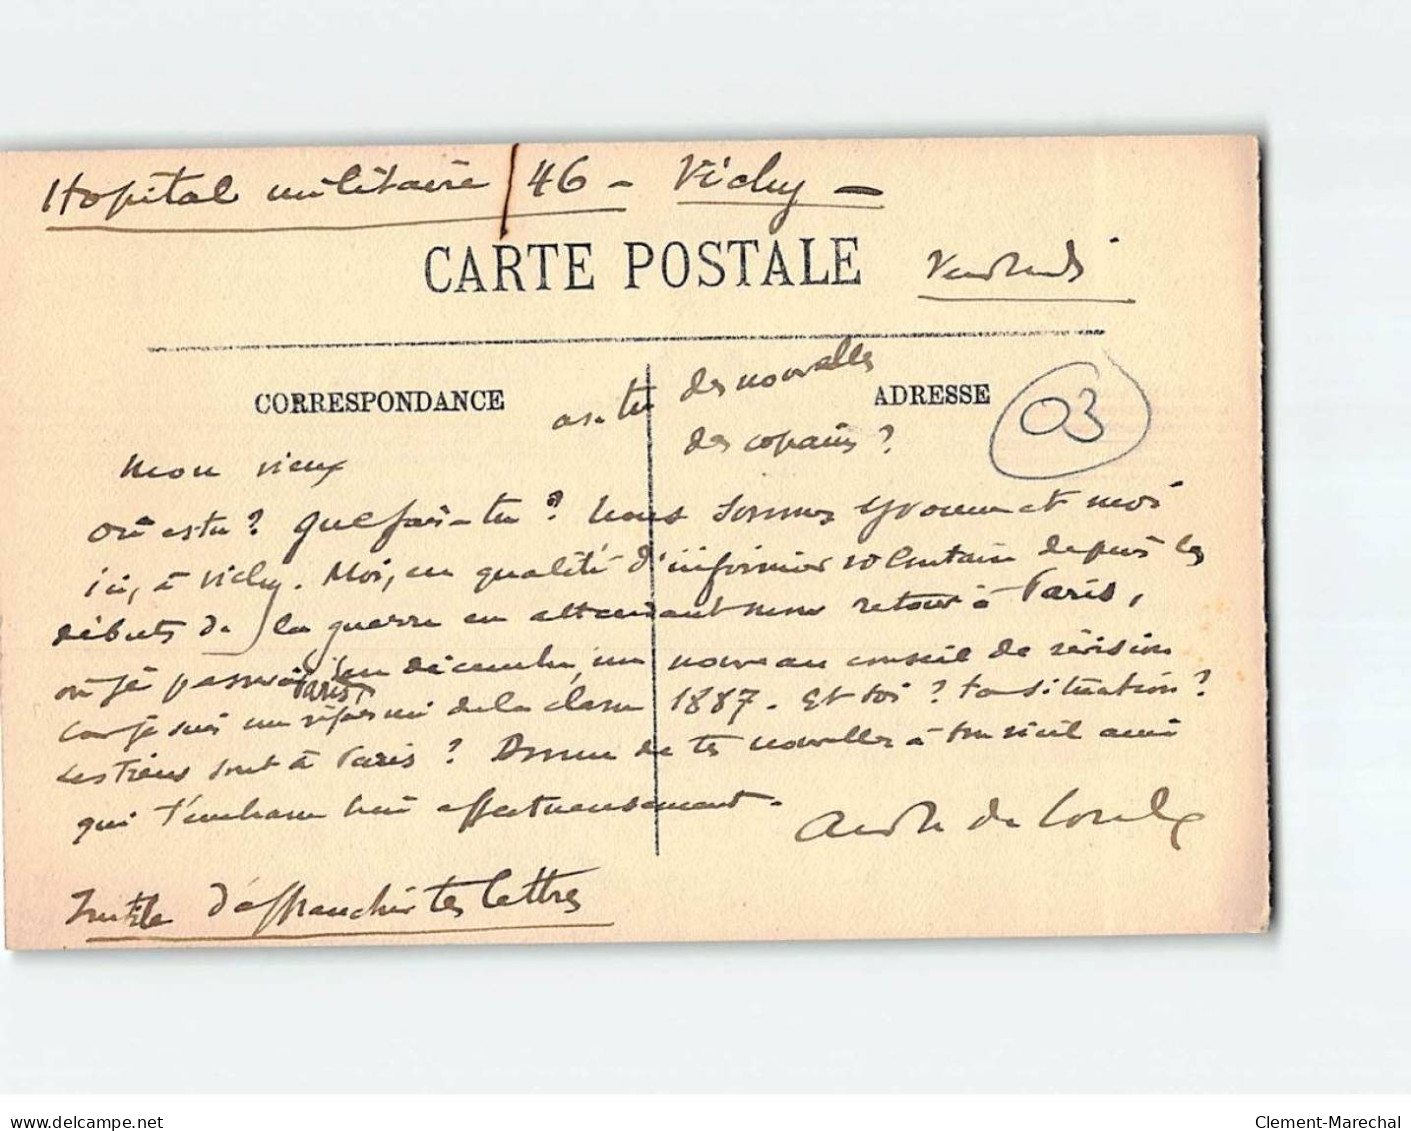 Hopital militaire 46 - Vichy -
CARTE POSTALE
Vendredi
CORRESPONDANCE
ADRESSE
03
as-tu des nouvelles
des copains ?
Mon vieux
Où es tu ? Que fais-tu ? Nous sommes Yvonne et moi
ici, à Vichy. Moi, en qualité d'infirmier volontaire depuis les
débuts de la guerre en attendant mon retour à Paris,
où je passerai en décembre, un nouveau conseil de révision
Paris
car je suis un réformé de la classe 1887. Et toi ? ta situation ?
Les tiens sont à Paris ? Donne de tes nouvelles à ton vieil ami
qui t'embrasse bien affectueusement.
André de
Inutile d'affranchir tes lettres
delcampe.net
Clement-Marechal